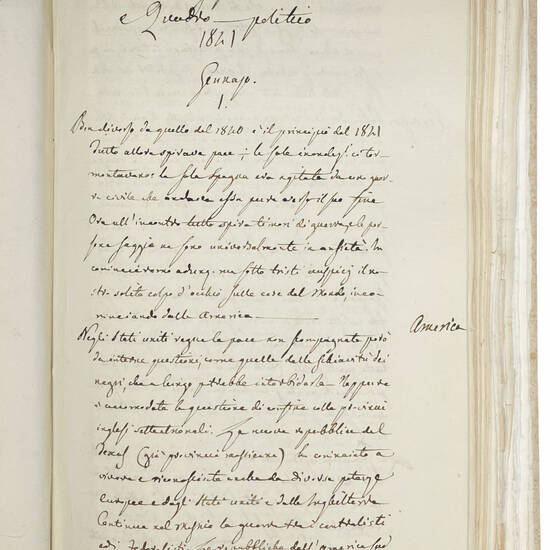 e Quadro politico
1841
Gennajo.
1.
Ben diverso da quello del 1840 è il principio del 1841
Tutto allora spirava pace; le sole
la sola Spagna era agitata da una guer-
ra civile che andava essa pure verso il suo fine
Ora all'incontro tutto spira timori di guerra, e le per-
sone saggie ne sono universalmente in ansietà. In
cominciaremo adunq. sotto tristi auspicj il no-
stro solito colpo d'occhio sulle cose del Mondo, inco-
minciando dalla America
America
Negli Stati uniti regna la pace non scompagnata però
da interne questioni, come quella della schiavitù dei
negri, che a lungo potrebbe intorbidarla. Neppure
è accomodata la questione di confine colle provincie
inglesi settentrionali. La nuova repubblica del
Texas (già provincia messicana) ha cominciato a
vivere e riconosciuta anche da diverse potenze
europee e dagli Stati uniti e dalla Inghilterra
Continua nel Messico la guerra tra i centralisti
ed i federalisti. Le repubbliche dell'America